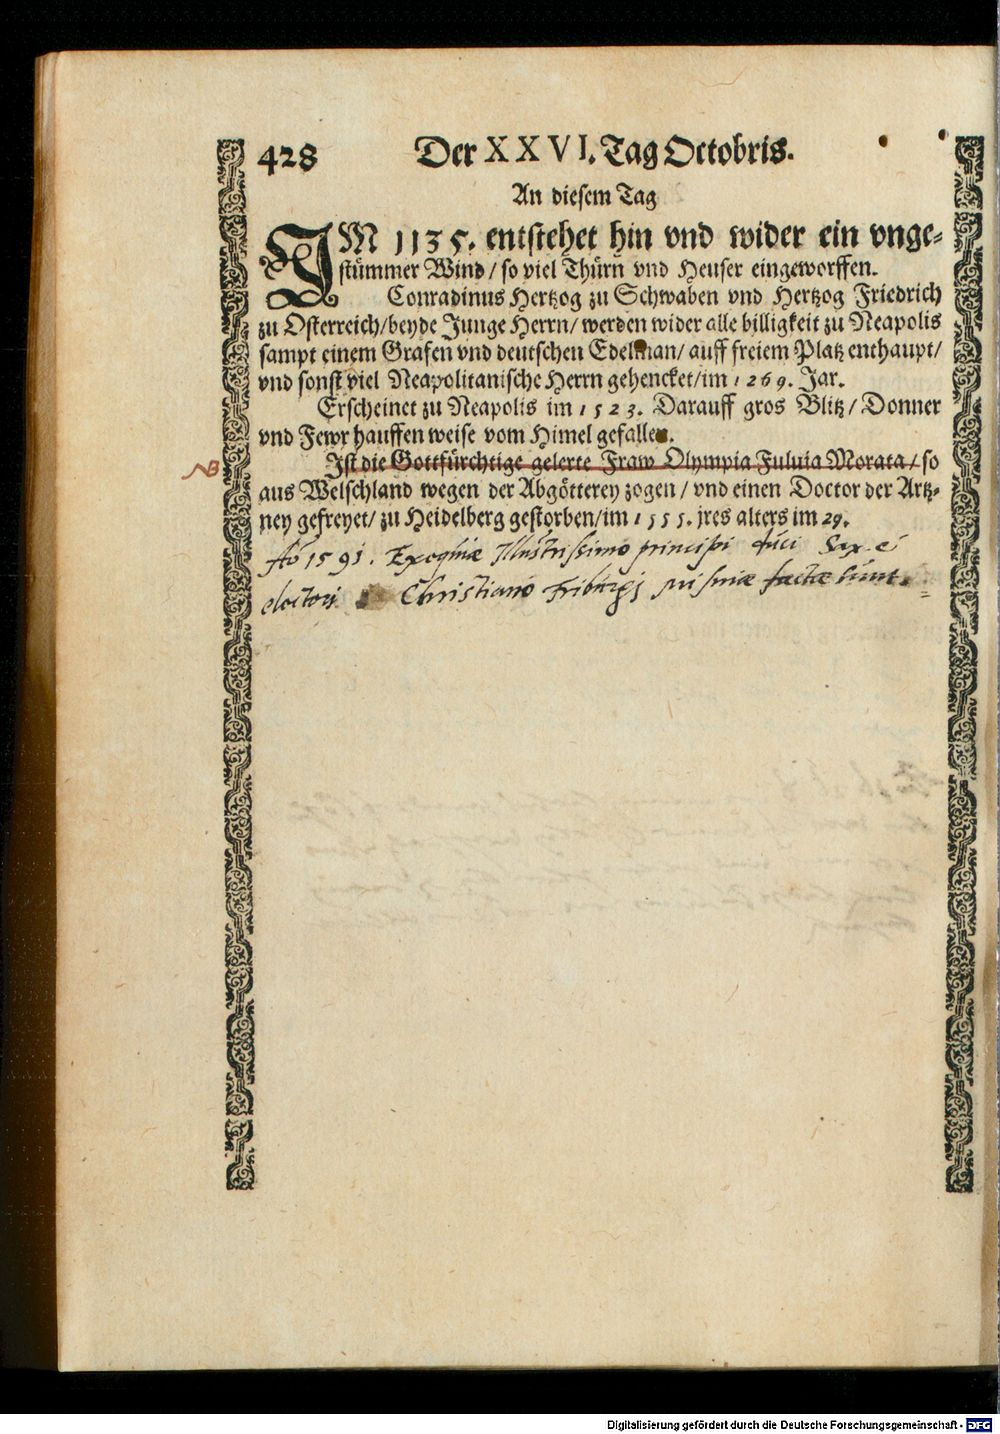 428 Der XXVI. Tag Octobris.
An diesem Tag
IM 1135. entstehet hin vnd wider ein vnge-
stümmer Wind / so viel Thürn vnd Heuser eingeworffen.
Conradinus Hertzog zu Schwaben vnd Hertzog Friedrich
zu Osterreich/beyde Junge Herrn/ werden wider alle billigkeit zu Neapolis
sampt einem Grafen vnd deutschen Edelman/ auff freiem Platz enthaupt/
vnd sonst viel Neapolitanische Herrn gehencket/im 1269. Jar.
Erscheinet zu Neapolis im 1523. Darauff gros Blitz / Donner
vnd Fewr hauffen weise vom Himel gefallen.
NB Ist die Gottfürchtige gelerte Fraw Olympia Fuluia Morata / so
aus Welschland wegen der Abgötterey zogen / vnd einen Doctor der Artz-
ney gefreyet/ zu Heidelberg gestorben/im 1555. jres alters im 29.
Aō 1591. Exequiae Illustrissimo principi duci Sax. e
electori Christiano Fribergj misniae factae sunt.
Digitalisierung gefördert durch die Deutsche Forschungsgemeinschaft - DFG